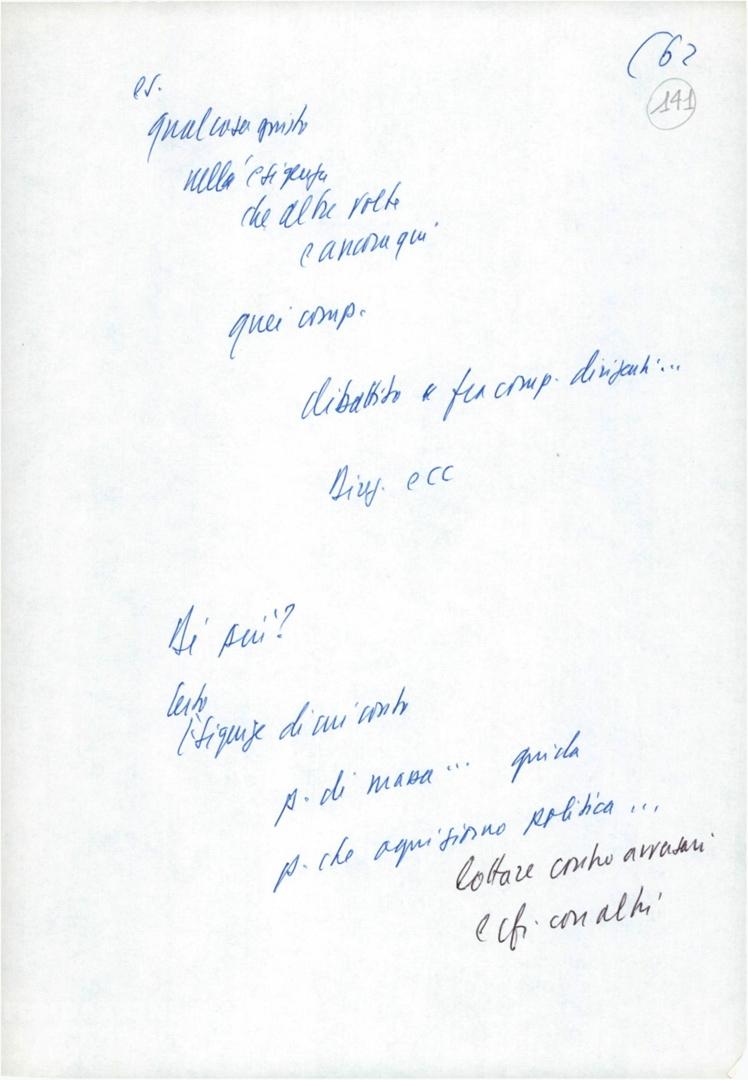 (62
141
es.
qualcosa giusto
nella esigenza
che altre volte
e ancora qui
quei comp.
dibattito a fra comp. dirigenti...
Direz. ecc
Di più?
Certo
Esigenze di cui conto
p. di massa... guida
p. che ogni giorno politica...
lottare contro avversari
e cfr. con altri